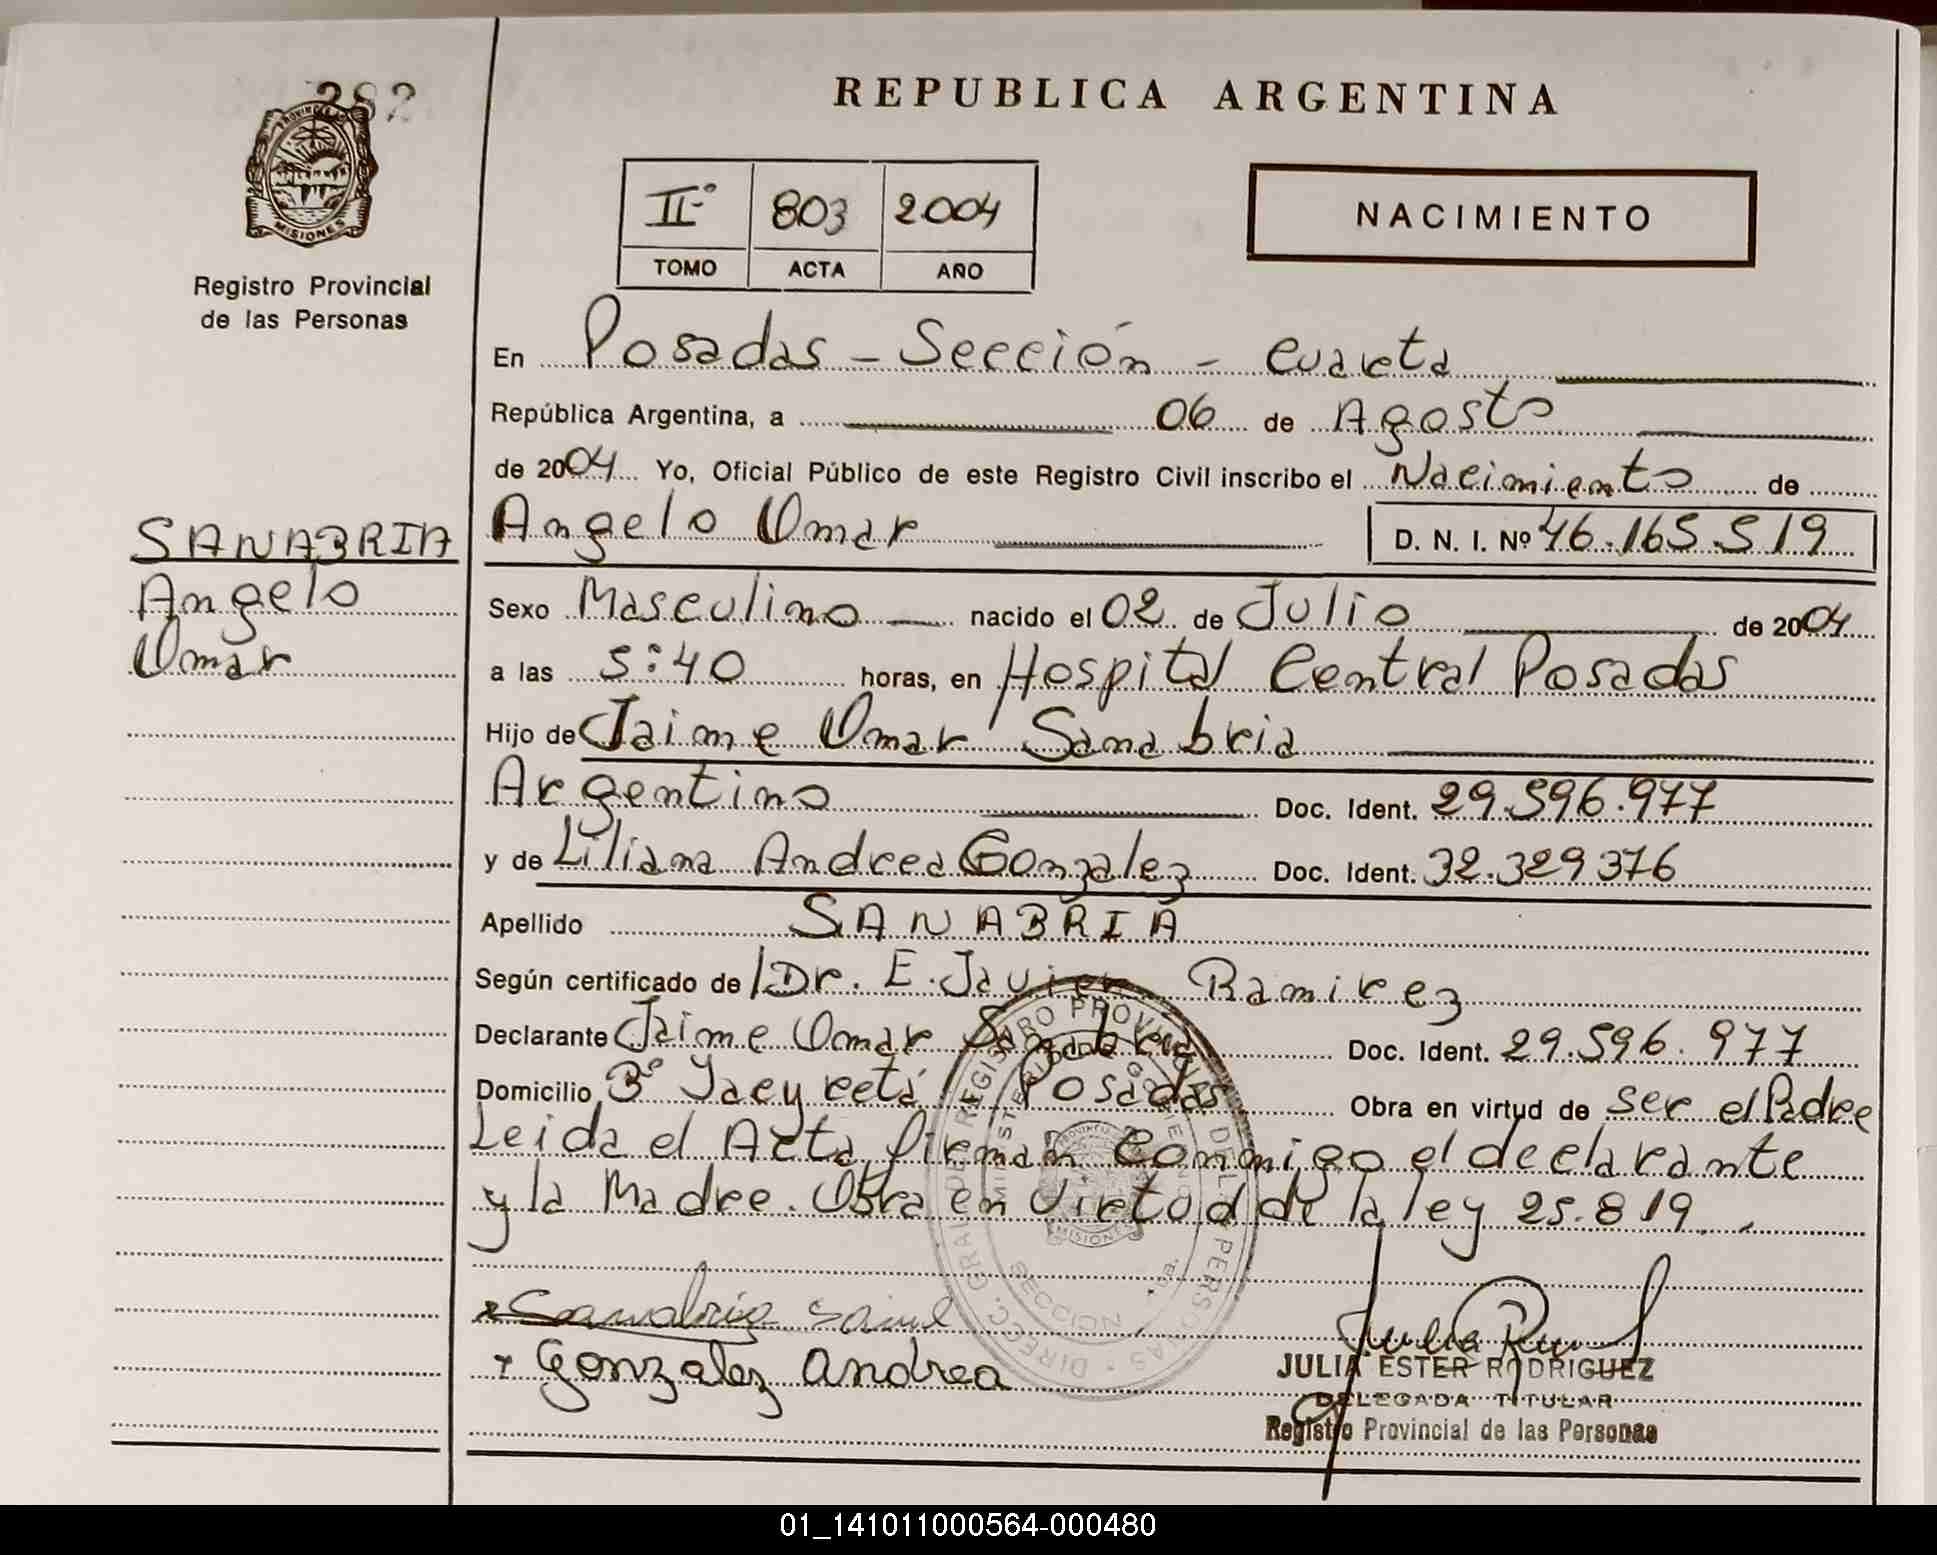 282
REPUBLICA ARGENTINA
PROVINCIA
MISIONES
Registro Provincial
de las Personas
IIº 803 2004
TOMO ACTA AÑO
NACIMIENTO
En Posadas - Sección - Cuarta
República Argentina, a 06 de Agosto
de 2004 Yo, Oficial Público de este Registro Civil inscribo el Nacimiento de
Angelo Omar D. N. I. Nº 46.165.519
SANABRIA
Angelo
Omar
Sexo Masculino nacido el 02 de Julio de 2004
a las 5:40 horas, en Hospital Central Posadas
Hijo de Jaime Omar Sanabria
Argentino Doc. Ident. 29.596.977
y de Liliana Andrea Gonzalez Doc. Ident. 32.329376
Apellido SANABRIA
Según certificado de Dr. E. Javier Ramirez
Declarante Jaime Omar Sanabria Doc. Ident. 29.596.977
Domicilio Bº Yacyretá Posadas Obra en virtud de ser el Padre
Leida el Acta firman conmigo el declarante
y la Madre. Obra en virtud de la ley 25.819
DIRECC. GRAL. DEL REGISTRO PROVINCIAL DE LAS PERSONAS
MISIONES
SECCION
Sanabria Jaime
Gonzalez Andrea
JULIA ESTER RODRIGUEZ
DELEGADA TITULAR
Registro Provincial de las Personas
01_141011000564-000480